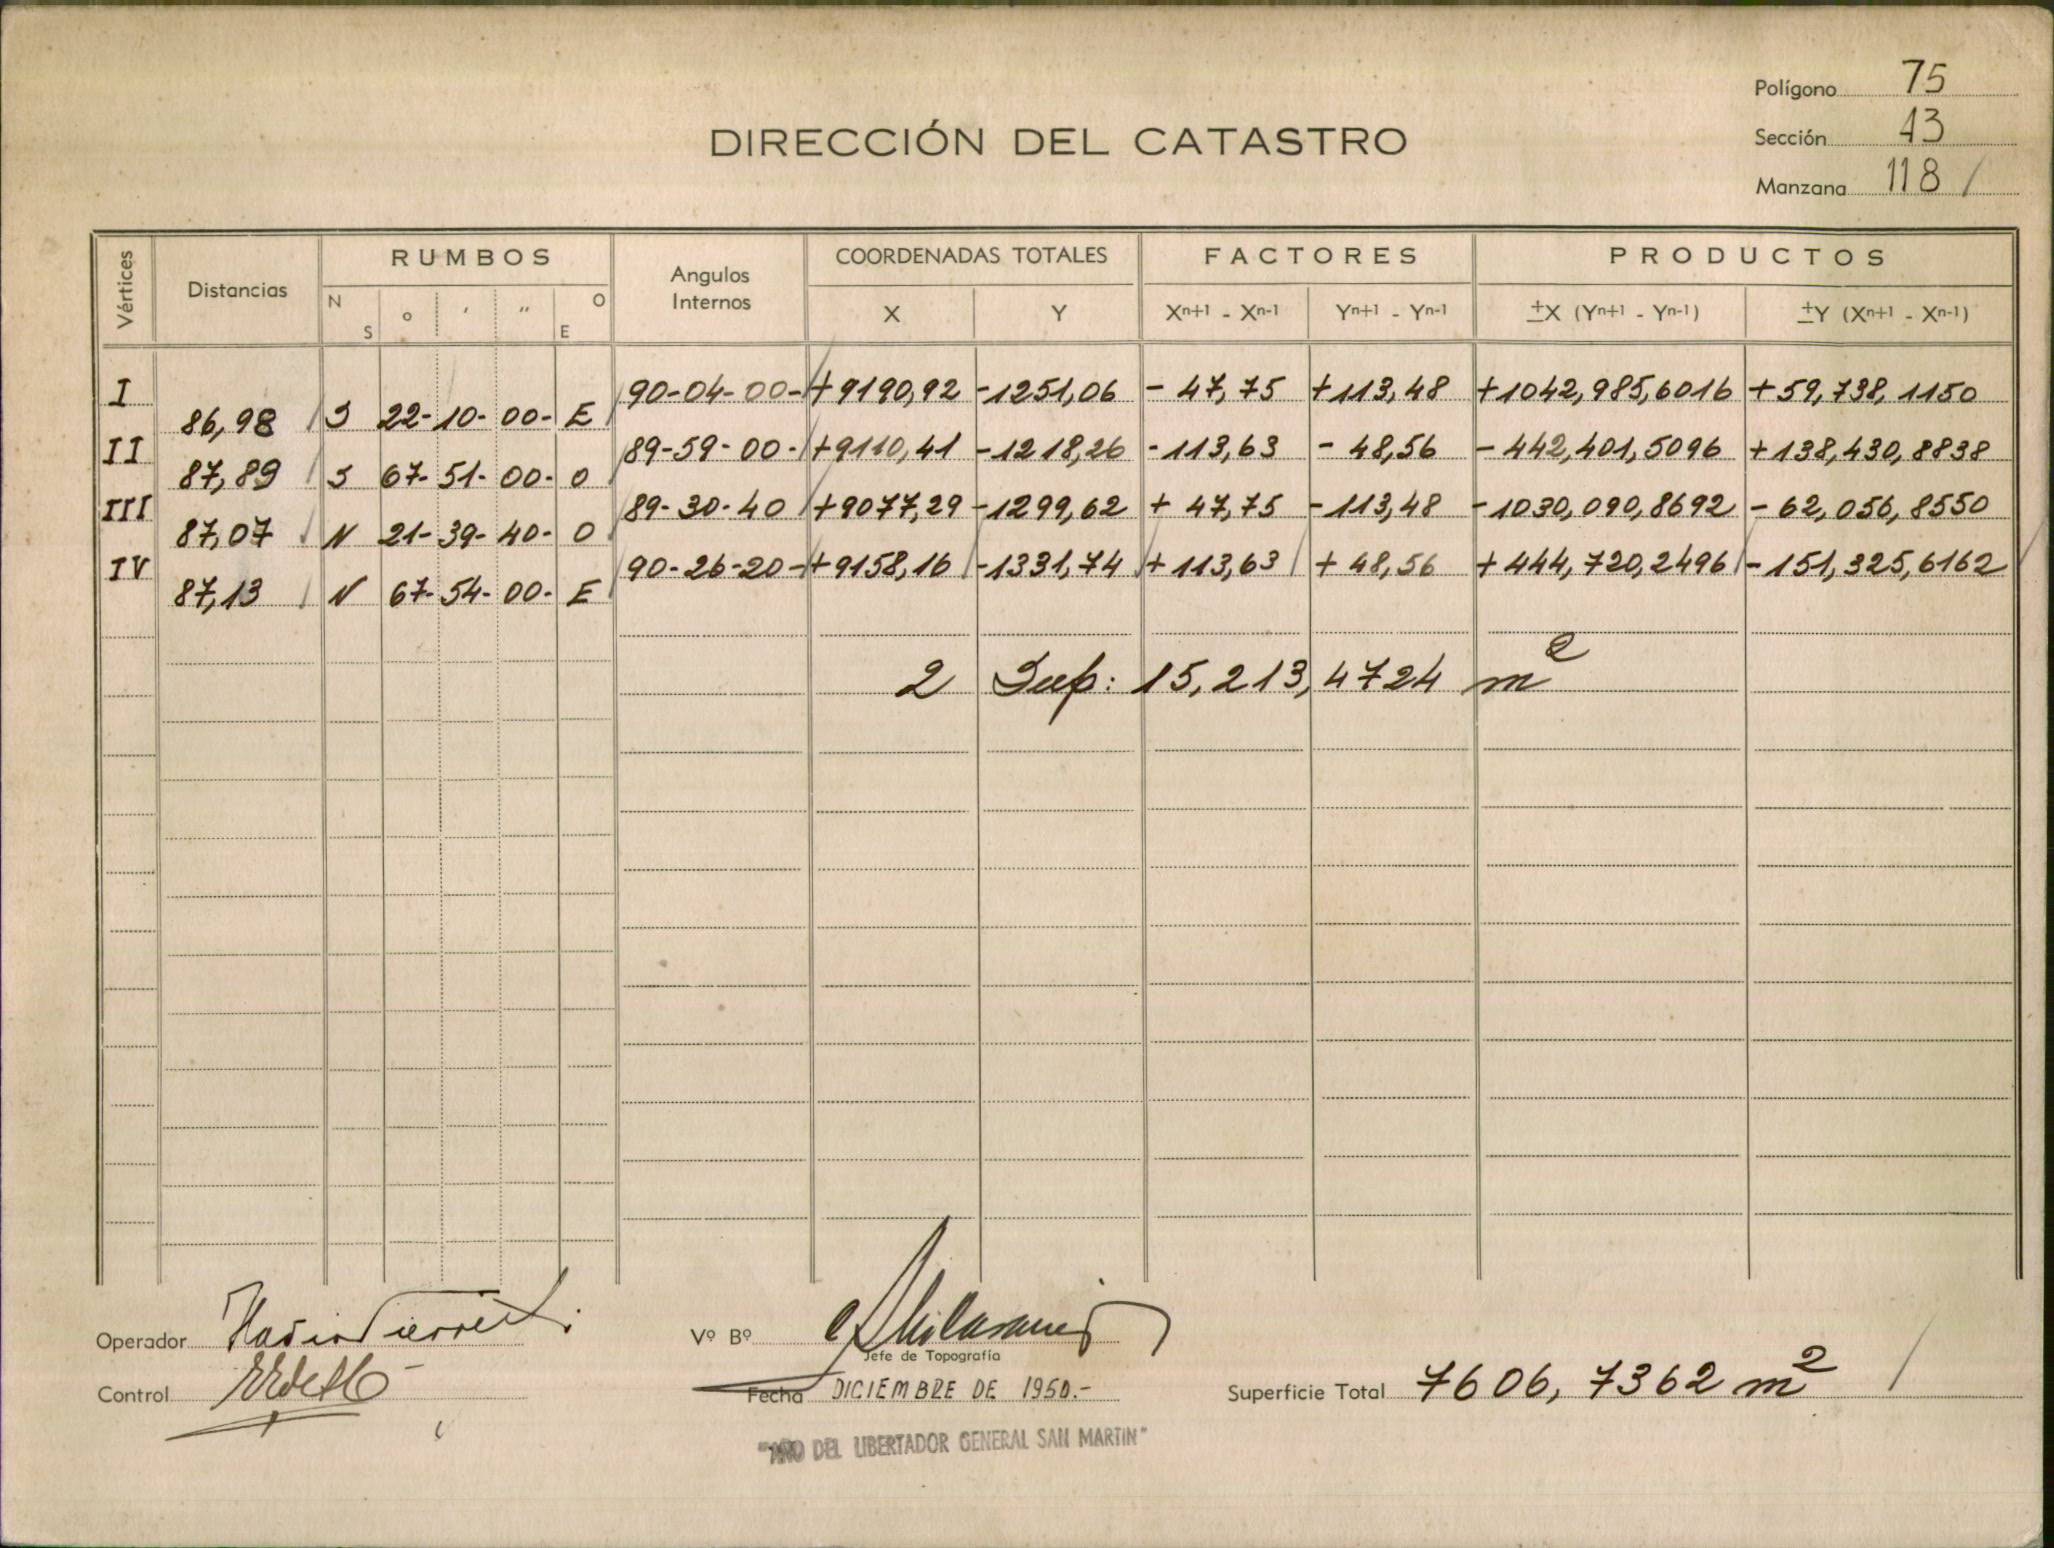 Polígono 75
DIRECCIÓN DEL CATASTRO
Sección 13
Manzana 118 /
Vértices Distancias RUMBOS Angulos Internos COORDENADAS TOTALES FACTORES PRODUCTOS
N S o ' " O E X Y Xn+1 - Xn-1 Yn+1 - Yn-1 ±X (Yn+1 - Yn-1) ±Y (Xn+1 - Xn-1)
I 90-04-00- +9190,92 -1251,06 - 47,75 +113,48 +1042,985,6016 +59,738,1150
86,98 S 22-10-00- E
II 89-59-00- +9110,41 -1218,26 -113,63 - 48,56 -442,401,5096 +138,430,8838
87,89 S 67-51-00- O
III 89-30-40 +9077,29 -1299,62 + 47,75 -113,48 -1030,090,8692 - 62,056,8550
87,07 N 21-39-40- O
IV 90-26-20- +9158,16 -1331,74 +113,63 + 48,56 +444,720,2496 -151,325,6162
87,13 N 67-54-00- E
2 Sup: 15,213,4724 m2
Operador
Vº Bº
Jefe de Topografía
Control
Fecha DICIEMBRE DE 1950.-
Superficie Total 7606,7362 m2 /
"AÑO DEL LIBERTADOR GENERAL SAN MARTIN"